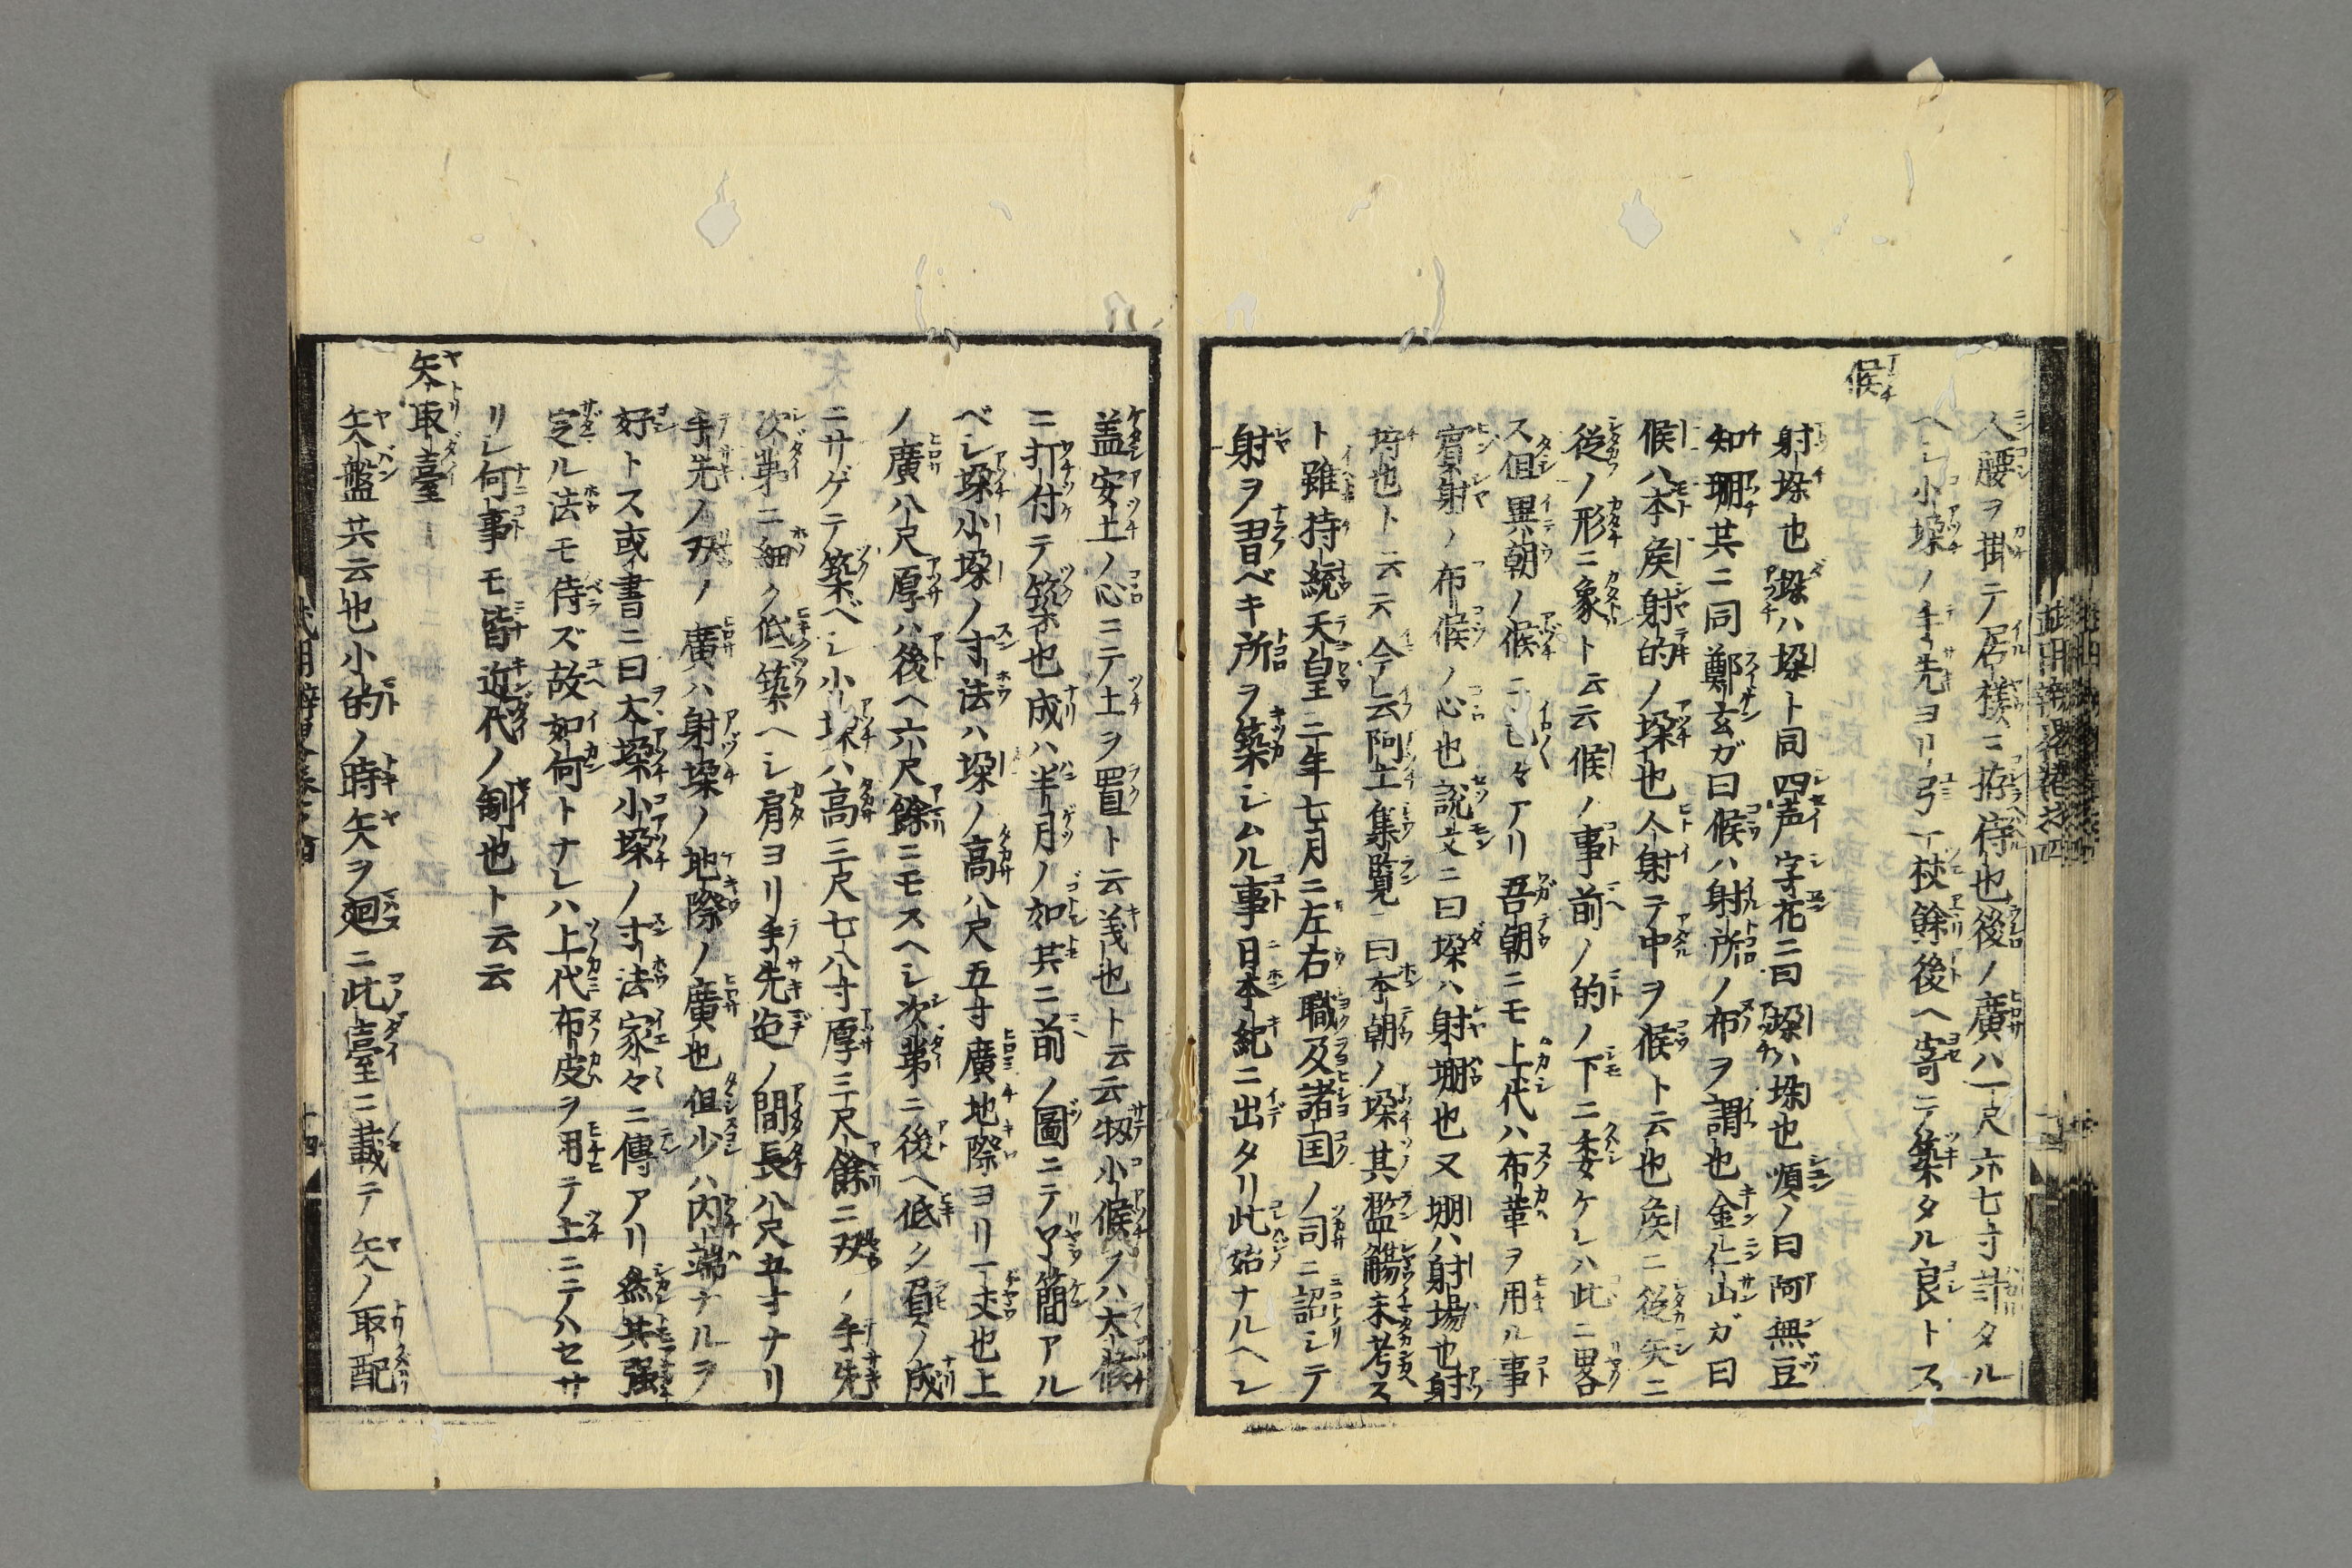 人腰ヲ掛テ居様ニ拵ル也後ノ廣ハ一尺六七寸計タル
ヘシ小垜ノ手先ヨリ弓一杖餘後ヘ寄ニテ築タル良トス
候
射垜也垜ハ垜ト同四声字苑ニ曰垜ハ垜也順ノ曰阿無豆
知堋共ニ同鄭玄ガ曰候ハ射所ノ布ヲ謂也金仁山ガ曰
候ハ本矦射的ノ垜也人射テ中ヲ候ト云也矦ニ従矢ニ
従ノ形ニ象ト云云候ノ事前ノ的ノ下ニ委ケレハ此ニ畧
ス但異朝ノ候ニ色々アリ吾朝ニモ上代ハ布革ヲ用ル事
賓射ノ布候ノ心也説文ニ曰垜ハ射堋也又堋ハ射場也射
埒也ト云云今云阿土集覧ニ曰本朝ノ垜其濫觴未考ス
ト雖持統天皇二年七月ニ左右職及諸国ノ司ニ詔シテ
射ヲ習ベキ所ヲ築シムル事日本紀ニ出タリ此始ナルヘシ
盖安土ノ心ニテ土ヲ置ト云義也ト云云扨小候ノハ大候
ニ打付テ築也成ハ半月ノ如其ニ前ノ圖ニテ了簡アル
ベシ垜小垜ノ寸法ハ垜ノ高八尺五寸廣地際ヨリ一丈也上
ノ廣八尺厚ハ後ヘ六尺餘ニモスヘシ次第ニ後ヘ低ク負ノ成
ニサゲテ築ベシ小垜ハ高三尺七八寸厚三尺餘ニ双ノ手先
次第ニ細ク低築ヘシ肩ヨリ手先迠ノ間長八尺五寸ナリ
手先ノ双ノ廣ハ射垜ノ地際ノ廣也但少ハ内端ナルヲ
好トス或書ニ曰大垜小垜ノ寸法家々ニ傳アリ然共强
定ル法モ侍ズ故如何トナレハ上代布皮ヲ用テ土ニテハセサ
リシ何事モ皆近代ノ制也ト云云
矢取臺
矢盤共云也小的ノ時矢ヲ廻ニ此臺ニ載テ矢ノ取配